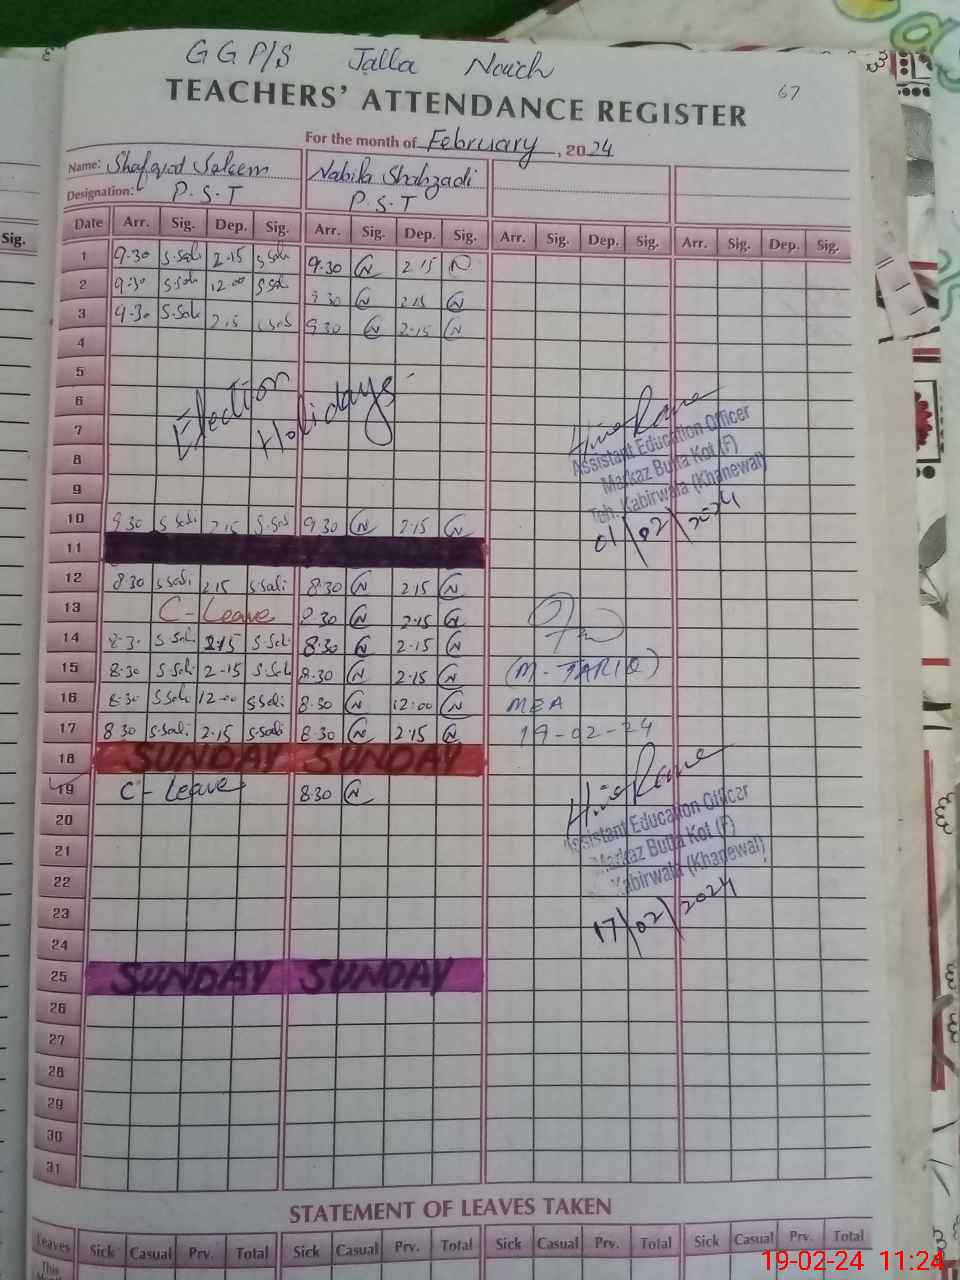 GGP/S Jalla Nauch
67
TEACHERS' ATTENDANCE REGISTER
For the month of February, 2024
Name: Shafqat Saleem Nabila Shahzadi
Designation: P.S.T P.S.T
Sig.
Date Arr. Sig. Dep. Sig. Arr. Sig. Dep. Sig. Arr. Sig. Dep. Sig. Arr. Sig. Dep. Sig.
1 9.30 S.Sali 2.15 S.Sali 9.30 N 2.15 N
2 9.30 S.Sali 12.00 S.Sali 9.30 N 2.15 N
3 9.30 S.Sali 2.15 S.Sali 9.30 N 2.15 N
4
5
6
7
Election Holidays
8
9
Assistant Education Officer
Markaz Butta Kot (F)
Teh. Kabirwala (Khanewal)
01/02/2024
10 9.30 S.Sali 2.15 S.Sali 9.30 N 2.15 N
11
12 8.30 S.Sali 2.15 S.Sali 8.30 N 2.15 N
13 C-Leave 8.30 N 2.15 N
14 8.30 S.Sali 2.15 S.Sali 8.30 N 2.15 N
15 8.30 S.Sali 2-15 S.Sali 8.30 N 2.15 N
16 8.30 S.Sali 12-00 S.Sali 8.30 N 12:00 N
17 8.30 S.Sali 2.15 S.Sali 8.30 N 2.15 N
(M. TARIQ)
MEA
19-02-24
18 SUNDAY SUNDAY
19 C-Leave 8.30 N
20
21
22
23
24
Assistant Education Officer
Markaz Butta Kot (F)
Kabirwala (Khanewal)
17/02/2024
25 SUNDAY SUNDAY
26
27
28
29
30
31
STATEMENT OF LEAVES TAKEN
Leaves Sick Casual Prv. Total Sick Casual Prv. Total Sick Casual Prv. Total Sick Casual Prv. Total
This
19-02-24 11:24